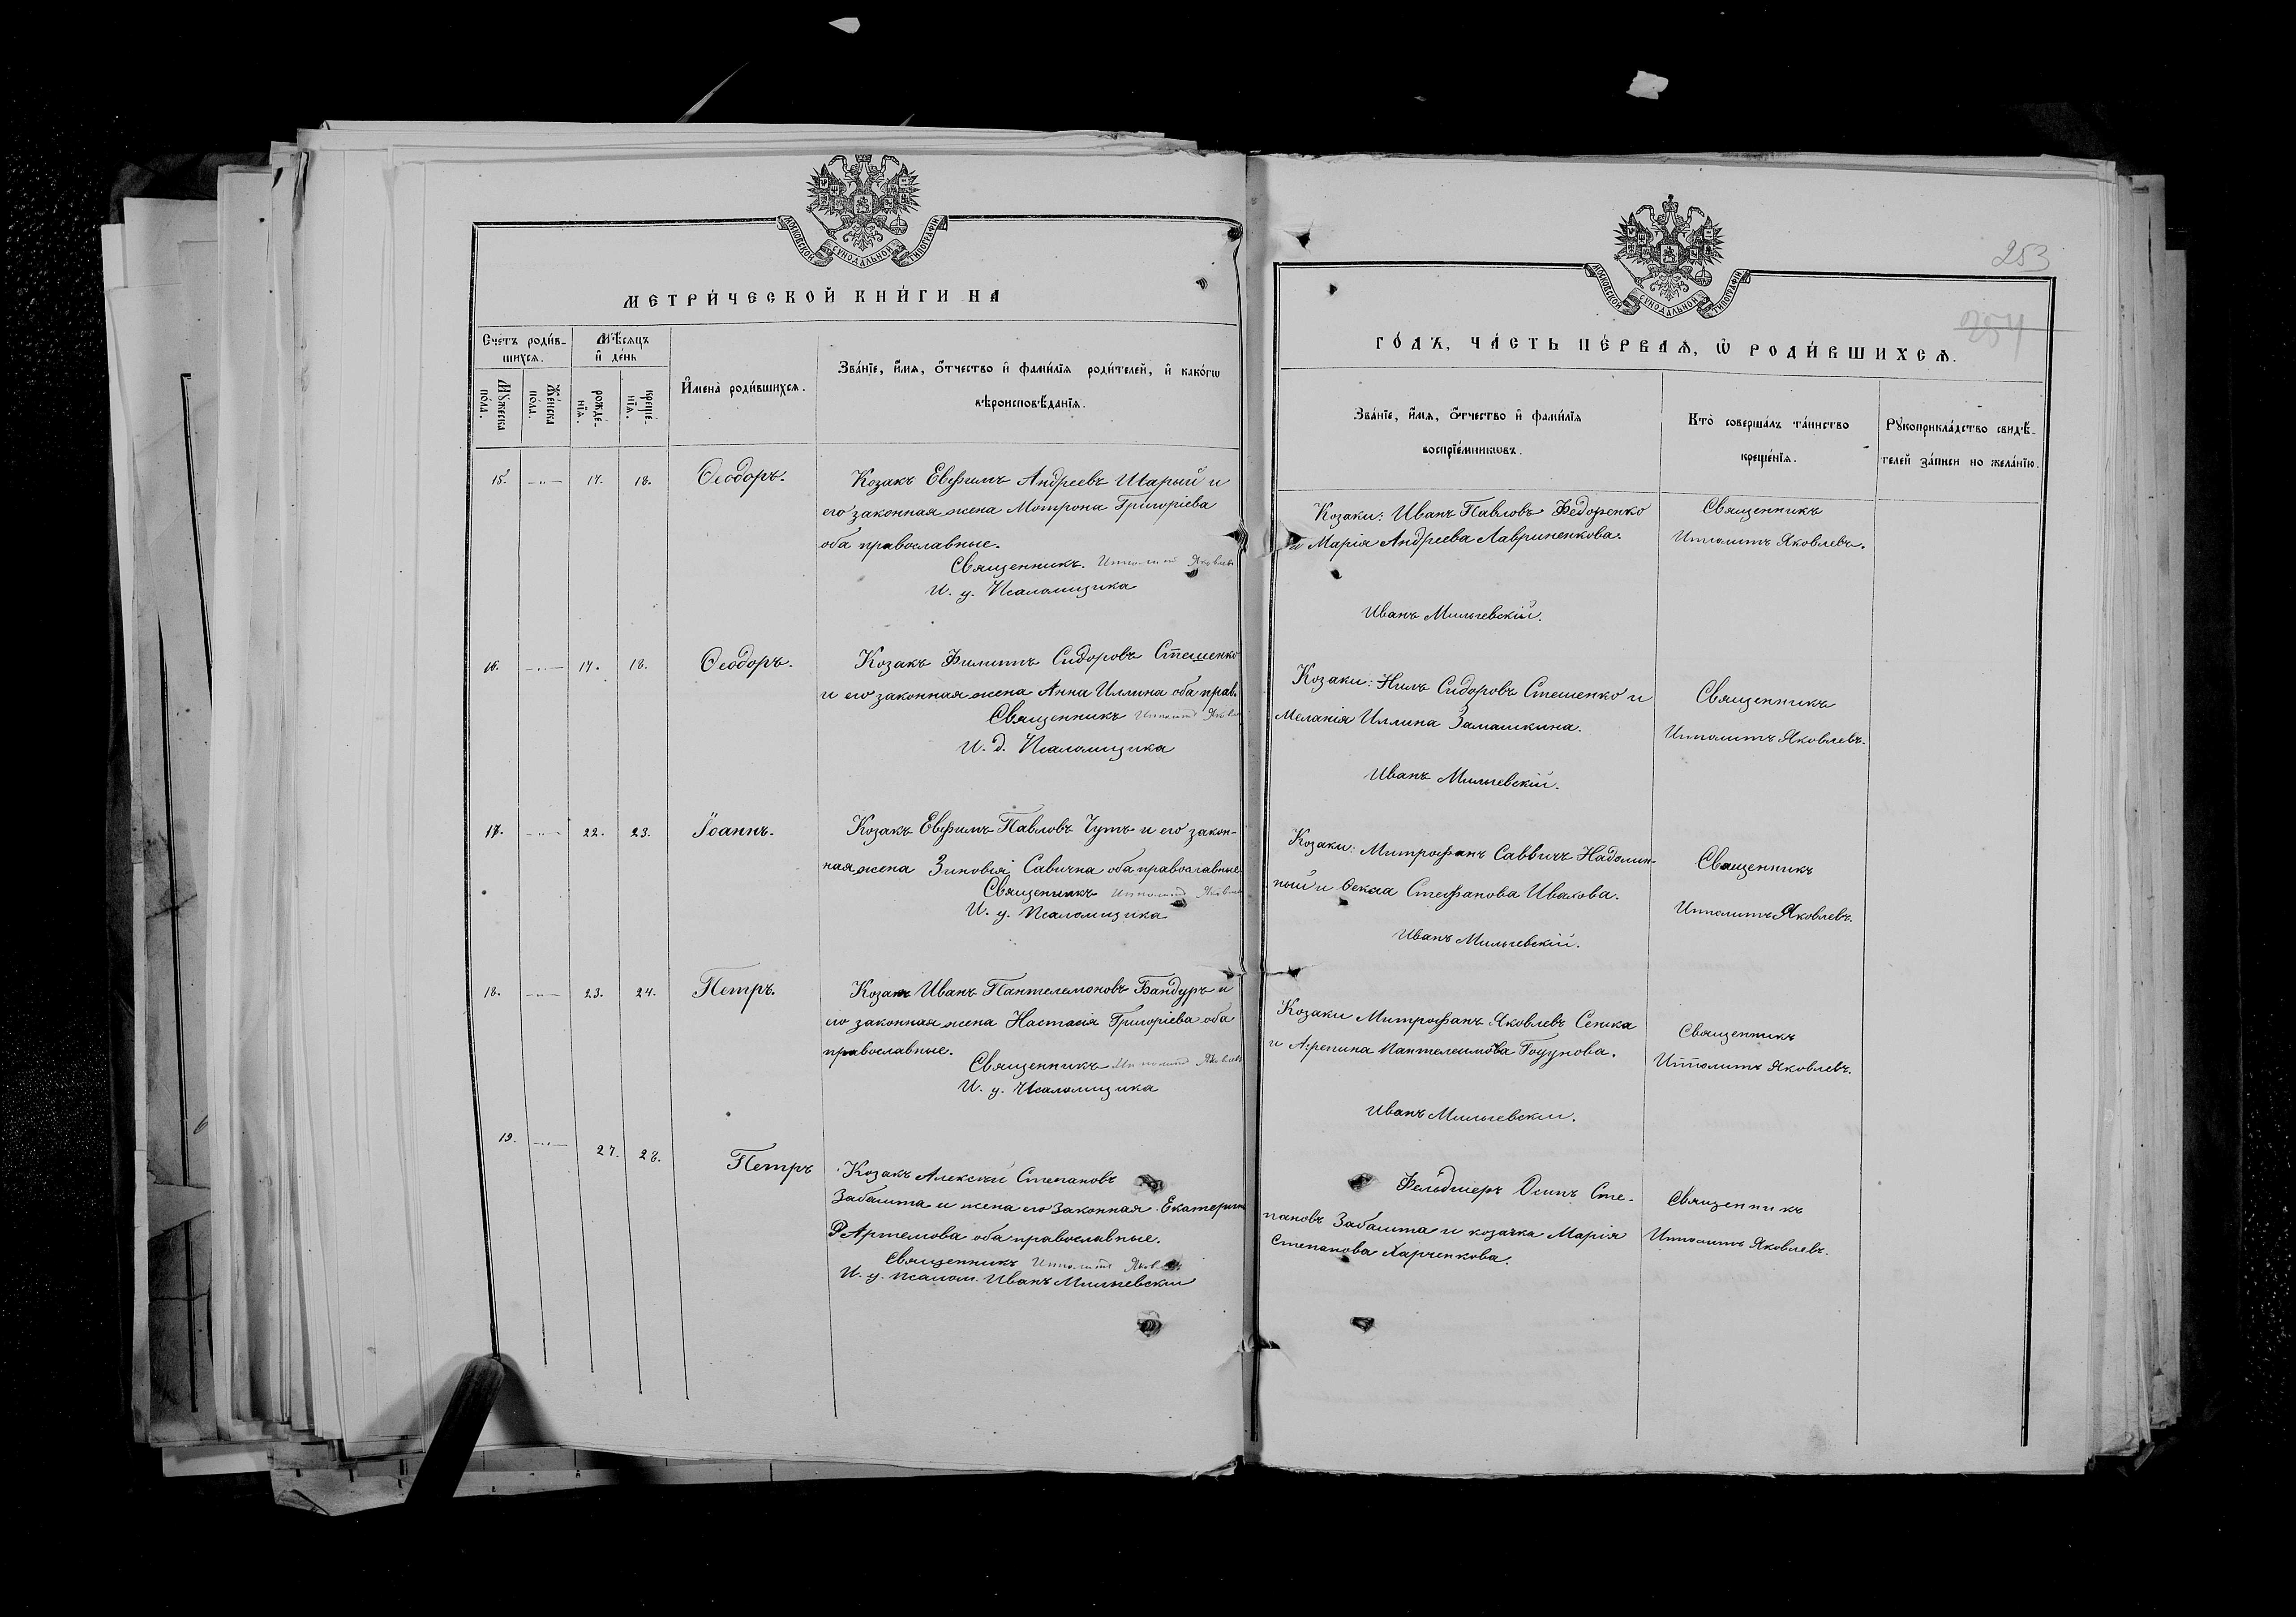 МОСКОВСКОЙ СѴНОДАЛЬНОЙ ТИПОГРАФІИ
МЕТРИ́ЧЕСКОЙ КНИ́ГИ НА
Сче́тъ роди́в-
шихся.
Мѣ́сяцъ
и҆ де́нь
Мꙋ́жеска
по́ла.
Же́нска
по́ла.
рожде́-
нїѧ.
креще́-
нїѧ.
И҆мена̀ роди́вшихсѧ.
Зва́нїе, и҆́мѧ, ѻ҆́тчество и҆ фами́лїѧ роди́телей, и҆ како́гѡ
вѣроисповѣ́данїѧ.
15. —„— 17. 18. Ѳеодоръ.
Козакъ Евфимъ Андреевъ Шарый и
его законная жена Мотрона Григоріева
оба православные.
Священникъ. Ипполитъ Яковлевъ
И. у. Псаломщика
16. —„— 17. 18. Ѳеодоръ.
Козакъ Филиппъ Сидоровъ Стешенко
и его законная жена Анна Иллина оба прав.
Священникъ Ипполитъ Яковл
И. д. Псаломщика
17. —„— 22. 23. Іоаннъ.
Козакъ Евфимъ Павловъ Чутъ и его закон-
ная жена Зиновія Савична оба православные
Священникъ Ипполитъ Яковл
И. у. Псаломщика
18. —„— 23. 24. Петръ.
Козакъ Иванъ Пантелемоновъ Бандуръ и
его законная жена Настасія Григоріева оба
православные.
Священникъ Ипполитъ Яковлевъ
И. у. Псаломщика
19. —„— 27. 28. Петръ
Козакъ Алексѣй Степановъ
Забашта и жена его законная Екатерина
Артемова оба православные.
Священникъ Ипполитъ Яковлевъ
И. у. псалом. Иванъ Мильчевскій
253
МОСКОВСКОЙ СѴНОДАЛЬНОЙ ТИПОГРАФІИ
254
ГО́ДЪ, ЧА́СТЬ ПЕ́РВАѦ, Ѡ҆ РОДИ́ВШИХСѦ.
Зва́нїе, и҆́мѧ, ѻ҆́тчество и҆ фами́лїѧ
воспрїе́мникѡвъ.
Кто̀ соверша́лъ та́инство
креще́нїѧ.
Рꙋкоприкла́дство свидѣ́-
телей за́писи по жела́нїю.
Козаки: Иванъ Павловъ Федоренко
и Марія Андреева Лавриненкова.
Священникъ
Ипполитъ Яковлевъ.
Иванъ Мильчевскій.
Козаки: Нилъ Сидоровъ Стешенко и
Меланія Иллина Замашкина.
Священникъ
Ипполитъ Яковлевъ.
Иванъ Мильчевскій.
Козаки: Митрофанъ Саввичъ Надолин-
ный и Ѳекла Стефанова Ивахова.
Священникъ
Ипполитъ Яковлевъ.
Иванъ Мильчевскій.
Козаки Митрофанъ Яковлевъ Сепка
и Агрепина Пантелеимова Гоцунова.
Священникъ
Ипполитъ Яковлевъ.
Иванъ Мильчевскій.
Фельдшеръ Осипъ Сте-
пановъ Забашта и козачка Марія
Степанова Харченкова.
Священникъ
Ипполитъ Яковлевъ.